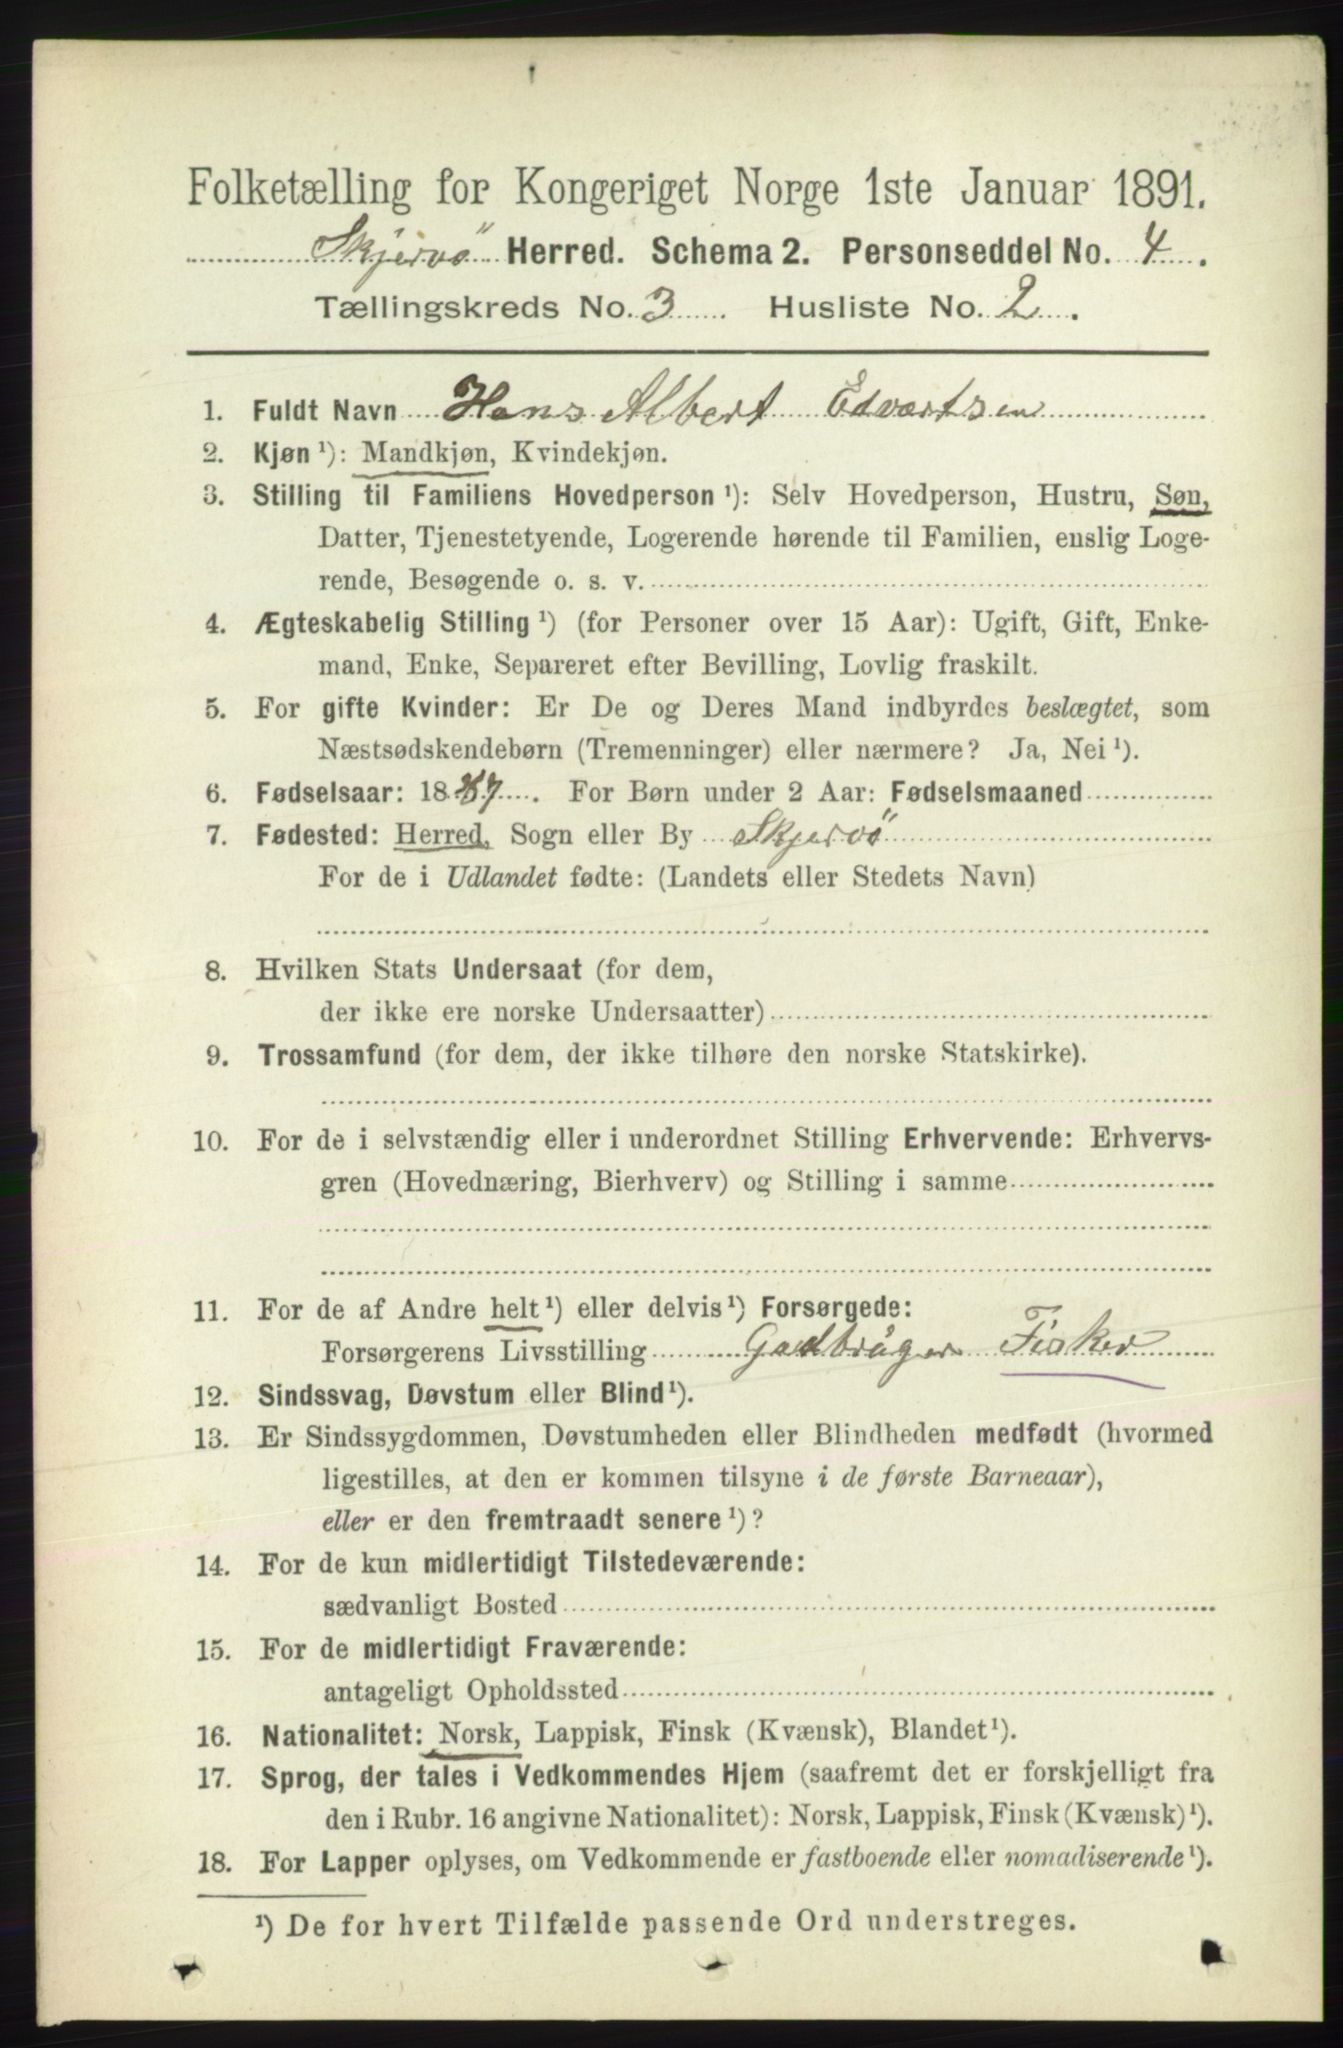 Folketælling for Kongeriget Norge 1ste Januar 1891.
Skjervö Herred. Schema 2. Personseddel No. 4.
Tællingskreds No. 3 Husliste No. 2.
1. Fuldt Navn Hans Albert Edvartsen
2. Kjøn ¹): Mandkjøn, Kvindekjøn.
3. Stilling til Familiens Hovedperson ¹): Selv Hovedperson, Hustru, Søn,
Datter, Tjenestetyende, Logerende hørende til Familien, enslig Loge-
rende, Besøgende o. s. v.
4. Ægteskabelig Stilling ¹) (for Personer over 15 Aar): Ugift, Gift, Enke-
mand, Enke, Separeret efter Bevilling, Lovlig fraskilt.
5. For gifte Kvinder: Er De og Deres Mand indbyrdes beslægtet, som
Næstsødskendebørn (Tremenninger) eller nærmere? Ja, Nei ¹).
6. Fødselsaar: 1887. For Børn under 2 Aar: Fødselsmaaned
7. Fødested: Herred, Sogn eller By Skjervö
For de i Udlandet fødte: (Landets eller Stedets Navn)
8. Hvilken Stats Undersaat (for dem,
der ikke ere norske Undersaatter)
9. Trossamfund (for dem, der ikke tilhøre den norske Statskirke).
10. For de i selvstændig eller i underordnet Stilling Erhvervende: Erhvervs-
gren (Hovednæring, Bierhverv) og Stilling i samme
11. For de af Andre helt ¹) eller delvis ¹) Forsørgede:
Forsørgerens Livsstilling Gadbrüger Fisker
12. Sindssvag, Døvstum eller Blind ¹).
13. Er Sindssygdommen, Døvstumheden eller Blindheden medfødt (hvormed
ligestilles, at den er kommen tilsyne i de første Barneaar),
eller er den fremtraadt senere ¹)?
14. For de kun midlertidigt Tilstedeværende:
sædvanligt Bosted
15. For de midlertidigt Fraværende:
antageligt Opholdssted
16. Nationalitet: Norsk, Lappisk, Finsk (Kvænsk), Blandet ¹).
17. Sprog, der tales i Vedkommendes Hjem (saafremt det er forskjelligt fra
den i Rubr. 16 angivne Nationalitet): Norsk, Lappisk, Finsk (Kvænsk) ¹).
18. For Lapper oplyses, om Vedkommende er fastboende eller nomadiserende ¹).
¹) De for hvert Tilfælde passende Ord understreges.